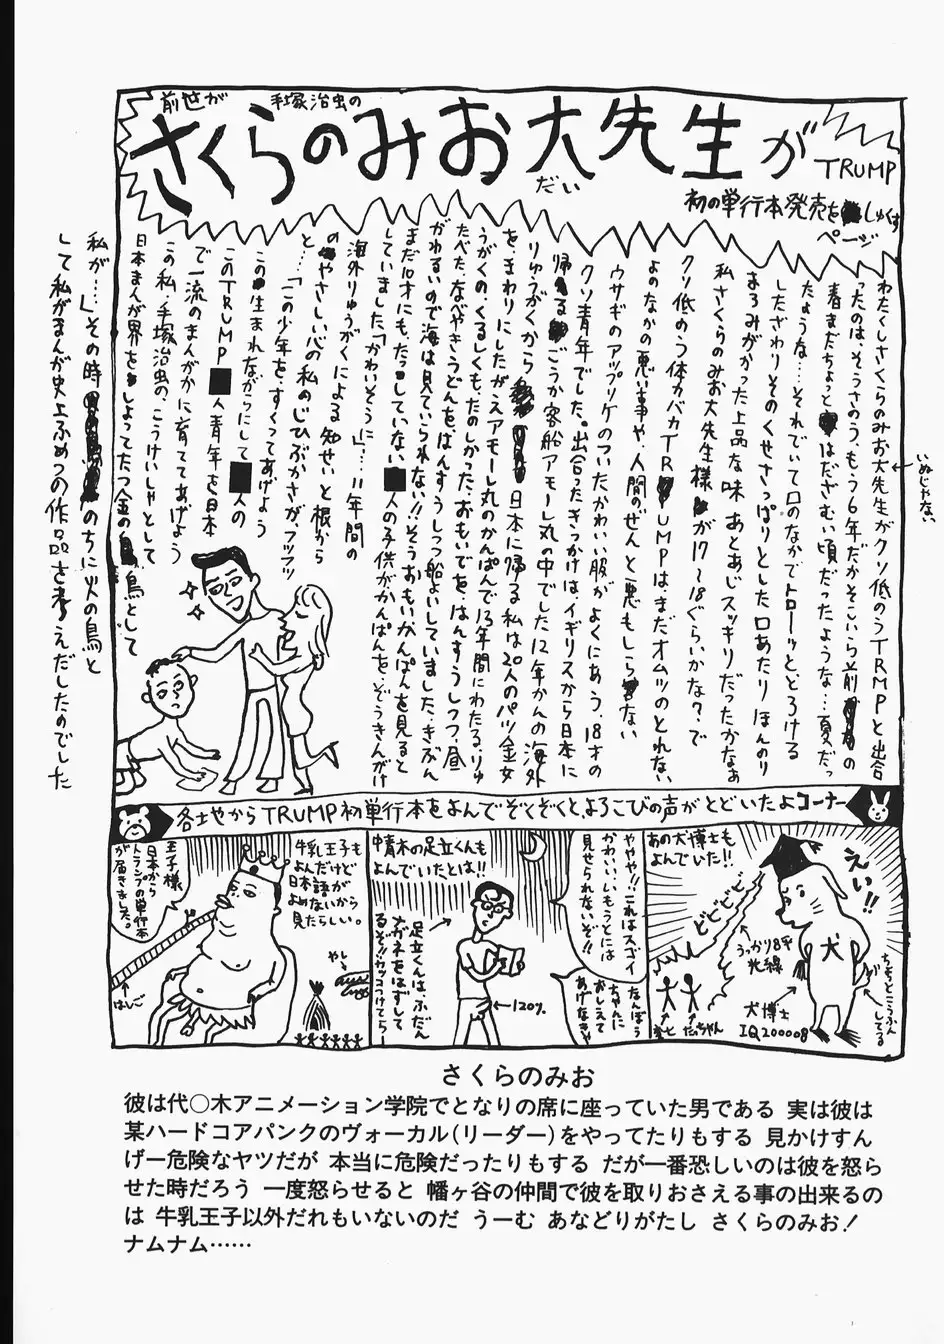 前世が 手塚治虫の
さくらのみお大先生が
だい
TRUMP
初の単行本発売をしゅくすページ
わたくしさくらのみお大先生がクソ低のうTRUMPと出合
いぬじゃない
ったのは、そうさのう、もう6年だかそこいら前の
春まだちょっとはだざむい頃だったような…夏だっ
たような…それでいて口のなかでトローッととろける
したざわりそのくせさっぱりとした口あたりほんのり
まろみがかった上品な味あとあじスッキリだったかなぁ
私さくらのみお大先生様が17〜18ぐらいかな?で
クソ低のう体力バカTRUMPは、まだオムツのとれない
よのなかの悪い事や、人間のぜんと悪もしらない
ウサギのアップリケのついたかわいい服がよくにあう、18才の
クソ青年でした。出合ったきっかけは、イギリスから日本に
帰るごうか客船アモーレ丸の中でした12年かんの海外
りゅうがくから日本に帰る私は20人のパツ金女
をまわりにしたがえアモーレ丸のかんぱんで13年間にわたる、りゅ
うがくの、くるしくも、たのしかった、おもいでを、はんすうしつつ、昼
たべた、なべやきうどんを、はんすうしつつ船よいしていました、きぶん
がわるいので海は見ていられない!!そうおもいかんぱんを見ると
まだ10才にもたっしていない■人の子供がかんぱんをぞうきんがけ
していました「かわいそうに」…11年間の
海外りゅうがくによる知せいと根から
のやさしい心の私のじひぶかさが、フツフツ
と…「この少年を、すくってあげよう
この生まれながらにして■人の
このTRUMP■人青年を日本
で一流のまんがかに育ててあげよう
この私、手塚治虫の、こうけいしゃとして
日本まんが界をしよってたつ金の鳥として
私が…」その時のちに火の鳥と
して私がまんが史上ふめつの作品を考えだしたのでした
各土也からTRUMP初単行本をよんでぞくぞくと、よろこびの声がとどいたよコーナー
あの犬博士も
よんでいた!!
えい!!
ビビビビ
うっかり8平
光線
犬
犬博士
IQ200008
だっちゃん
ちょっとこうふん
してる
中青木の足立くんも
よんでいたとは!!
ややや!!これはスゴイ
かわいいいもうとには
見せられないぞ!!
足立くんは、ふだん
メガネをはずして
るぞ!!カッコつけてらー
120%
牛乳王子も
よんだけど
日本語が
よめないから
見たらしい。
王子様
日本から
トランプの単行本
が届きました。
はしご
やし
さくらのみお
彼は代〇木アニメーション学院でとなりの席に座っていた男である 実は彼は
某ハードコアパンクのヴォーカル(リーダー)をやってたりもする 見かけすん
げー危険なヤツだが 本当に危険だったりもする だが一番恐しいのは彼を怒ら
せた時だろう 一度怒らせると 幡ヶ谷の仲間で彼を取りおさえる事の出来るの
は 牛乳王子以外だれもいないのだ うーむ あなどりがたし さくらのみお!
ナムナム……